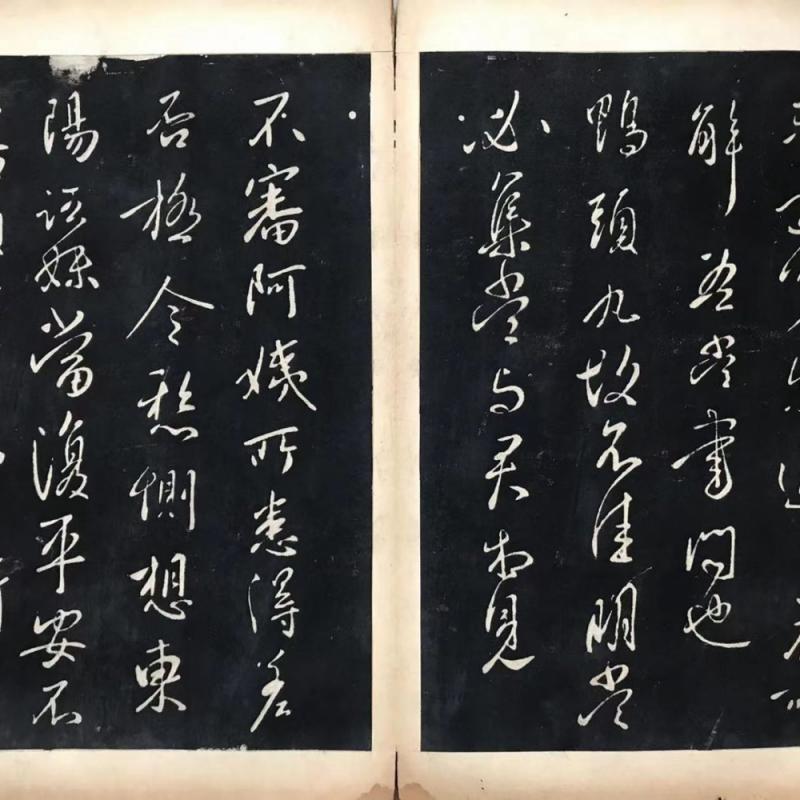 解吾當書問也
鴨頭丸故不佳明當
必集當与君相見
不審阿姨所患得差
否極令懸惻想東
陽諸妹當復平安不